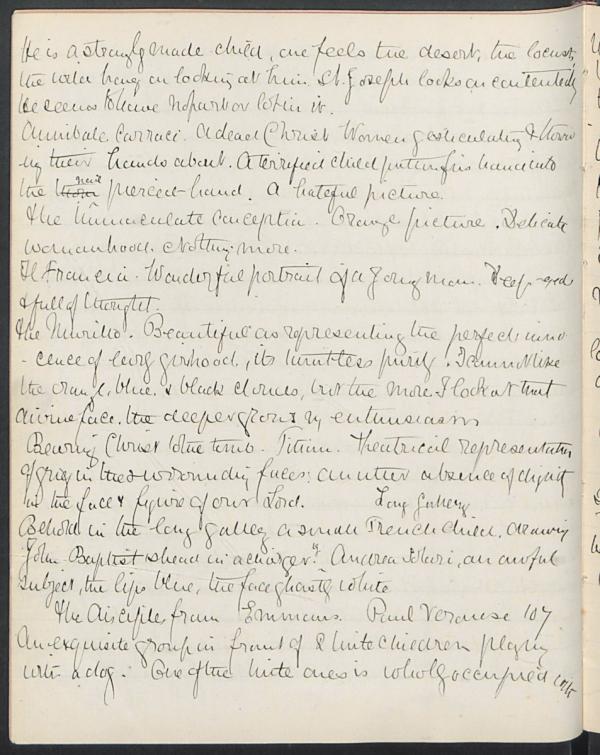 He is a strongly made child, one feels the desert, the locust,
the wild honey on looking at him. St. Joseph looks on contentedly
He seems to have no part or lot in it.
Annibale Carraci. A dead Christ Women gesticulating & throw
ing their hands about. A terrified child putting his hand into
the nail pierced hand. A hateful picture.
The Immaculate Conception. Orange picture. Delicate
womanhood. Nothing more.
Il Francia. Wonderful portrait of a young man. Deep-eyed
& full of thought.
The Murillo. Beautiful as representing the perfect inno
-cence of early girlhood, its limitless purity. I cannot like
the orange, blue & black clouds, but the more I look at that
divine face, the deeper grows my enthusiasm
Bearing Christ to the tomb. Titian. Theatrical representation
of grief in the surrounding faces, an utter absence of dignity
in the face & figure of our Lord. Long Gallery
Behold in the long gallery a small French child, drawing
"John Baptist's head in a charger". Andrea, an awful
subject, the lips blue, the face ghastly white
The disciples from Emmaus. Paul Veronese 107
An exquisite group in front of 2 little children playing
with a dog. One of the little ones is wholly occupied with